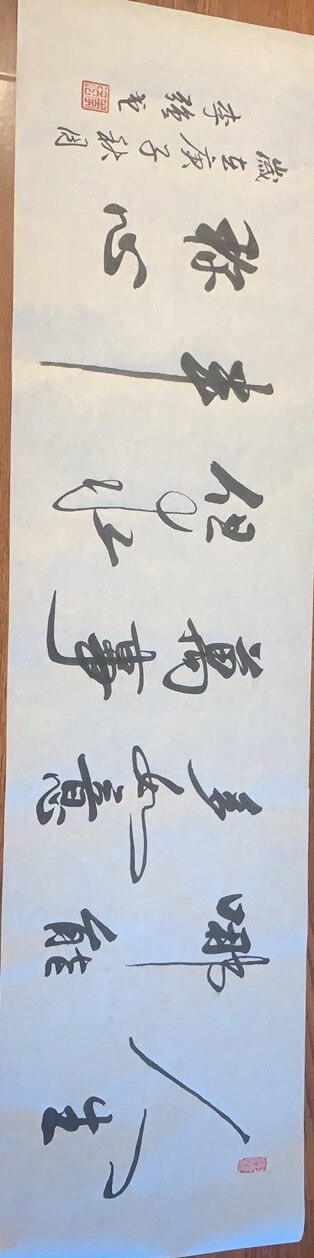 人生
哪能
多如意
萬事
但求
半
称心
歲在庚子秋月
李强书